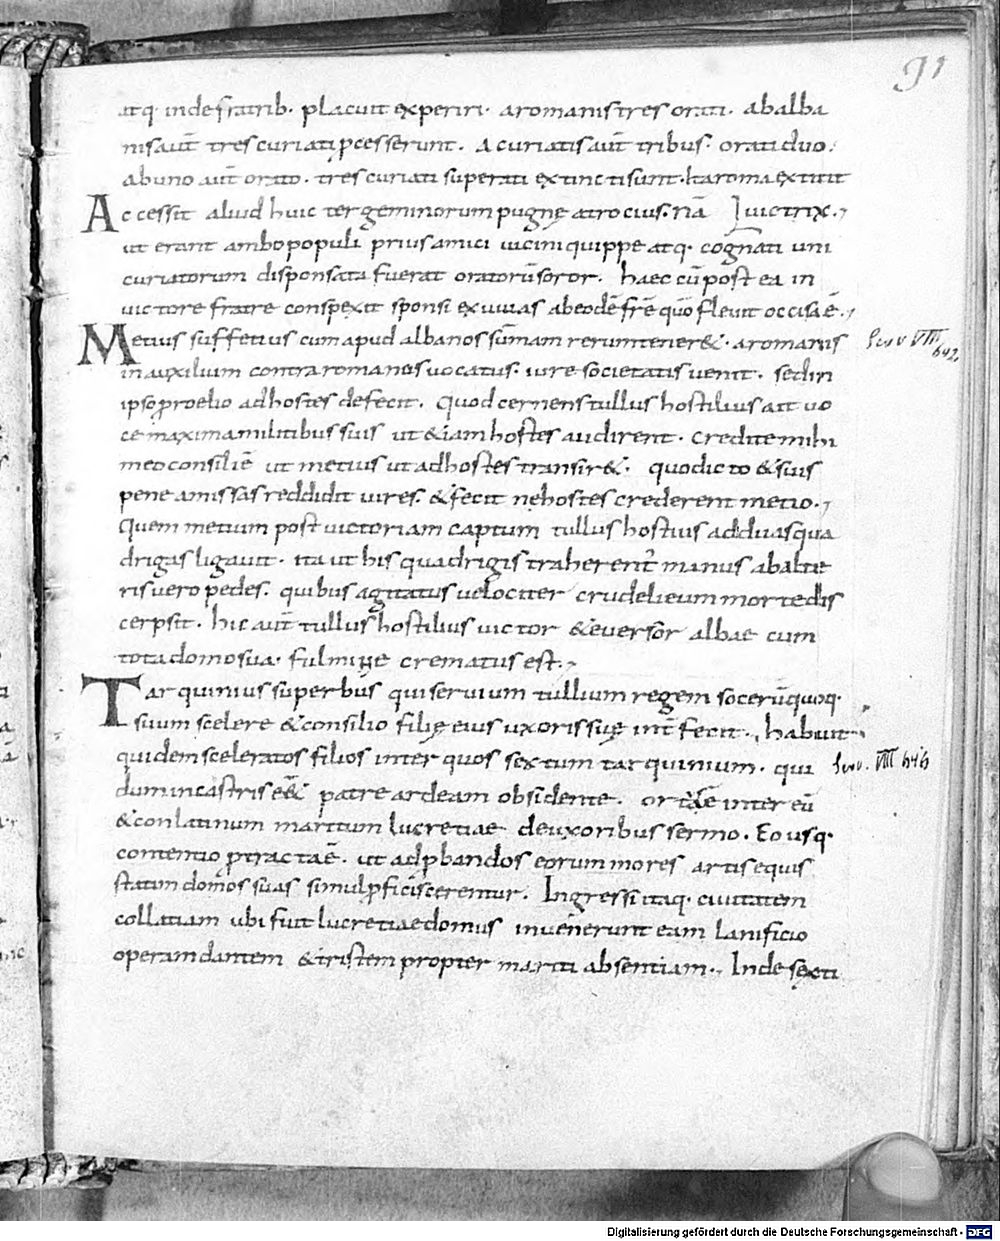 91
atq· inde fratrib· placuit experiri· a romanis tres orati· ab alba
nis aut̄ tres curiati pcesserunt. A curiatis aut̄ tribus· orati duo·
ab uno aut̄ orato· tres curiati superati extincti sunt· Ita roma extitit
Accessit aliud huic tergeminorum pugnę atrocius· nā [victrix·,
ut erant ambo populi prius amici uicini quippe atq· cognati uni
curiatorum disponsata fuerat oratorū soror. haec cū post ea in
uictore fratre conspexit sponsi exuuias ab eodē frē quō fleuit occisa ē·,
Metius suffetius cum apud albanos sūmam rerum tener&· a romanis
in auxilium contra romanos uocatus· iure societatis uenit· sed in
ipso proelio ad hostes defecit. Quod cernens tullus hostilius ait uo
ce maxima militibus suis ut &iam hostes audirent· credite mihi
meo consiliē ut metius ut ad hostes transir&· quo dicto & suis
pene amissas reddidit uires· & fecit nę hostes crederent metio·,
Quem metium post uictoriam captum tullus hostius ad duas qua
drigas ligauit· ita ut his quadrigis traherent̃ manus ab alte
ris uero pedes· quibus agitatus uelociter crudelieum morte dis
cerpsit. hic aut̄ tullus hostilius uictor & euersor albae cum
tota domo sua· fulmine crematus est·,
Tarquinius superbus qui seruium tullium regem socerū quoq·
suum scelere & consilio filię eius uxoris suę int̄fecit·, habuit
quidem sceleratos filios inter quos sextum tarquinium· qui
dum in castris e&̄ patre ardeam obsidente. orta ē inter eū
& conlatinum maritum lucretiae de uxoribus sermo· Eo usq·
contentio ptracta ē· ut ad pbandos eorum mores artis equis
statim domos suas simul pficiscerentur. Ingressi itaq· ciuitatem
collatiam ubi fuit lucretiae domus inuenerunt eam lanificio
operam dantem & tristem propter mariti absentiam·, Inde sexti
Serv VIII
642.
Serv. VIII 646
Digitalisierung gefördert durch die Deutsche Forschungsgemeinschaft - DFG